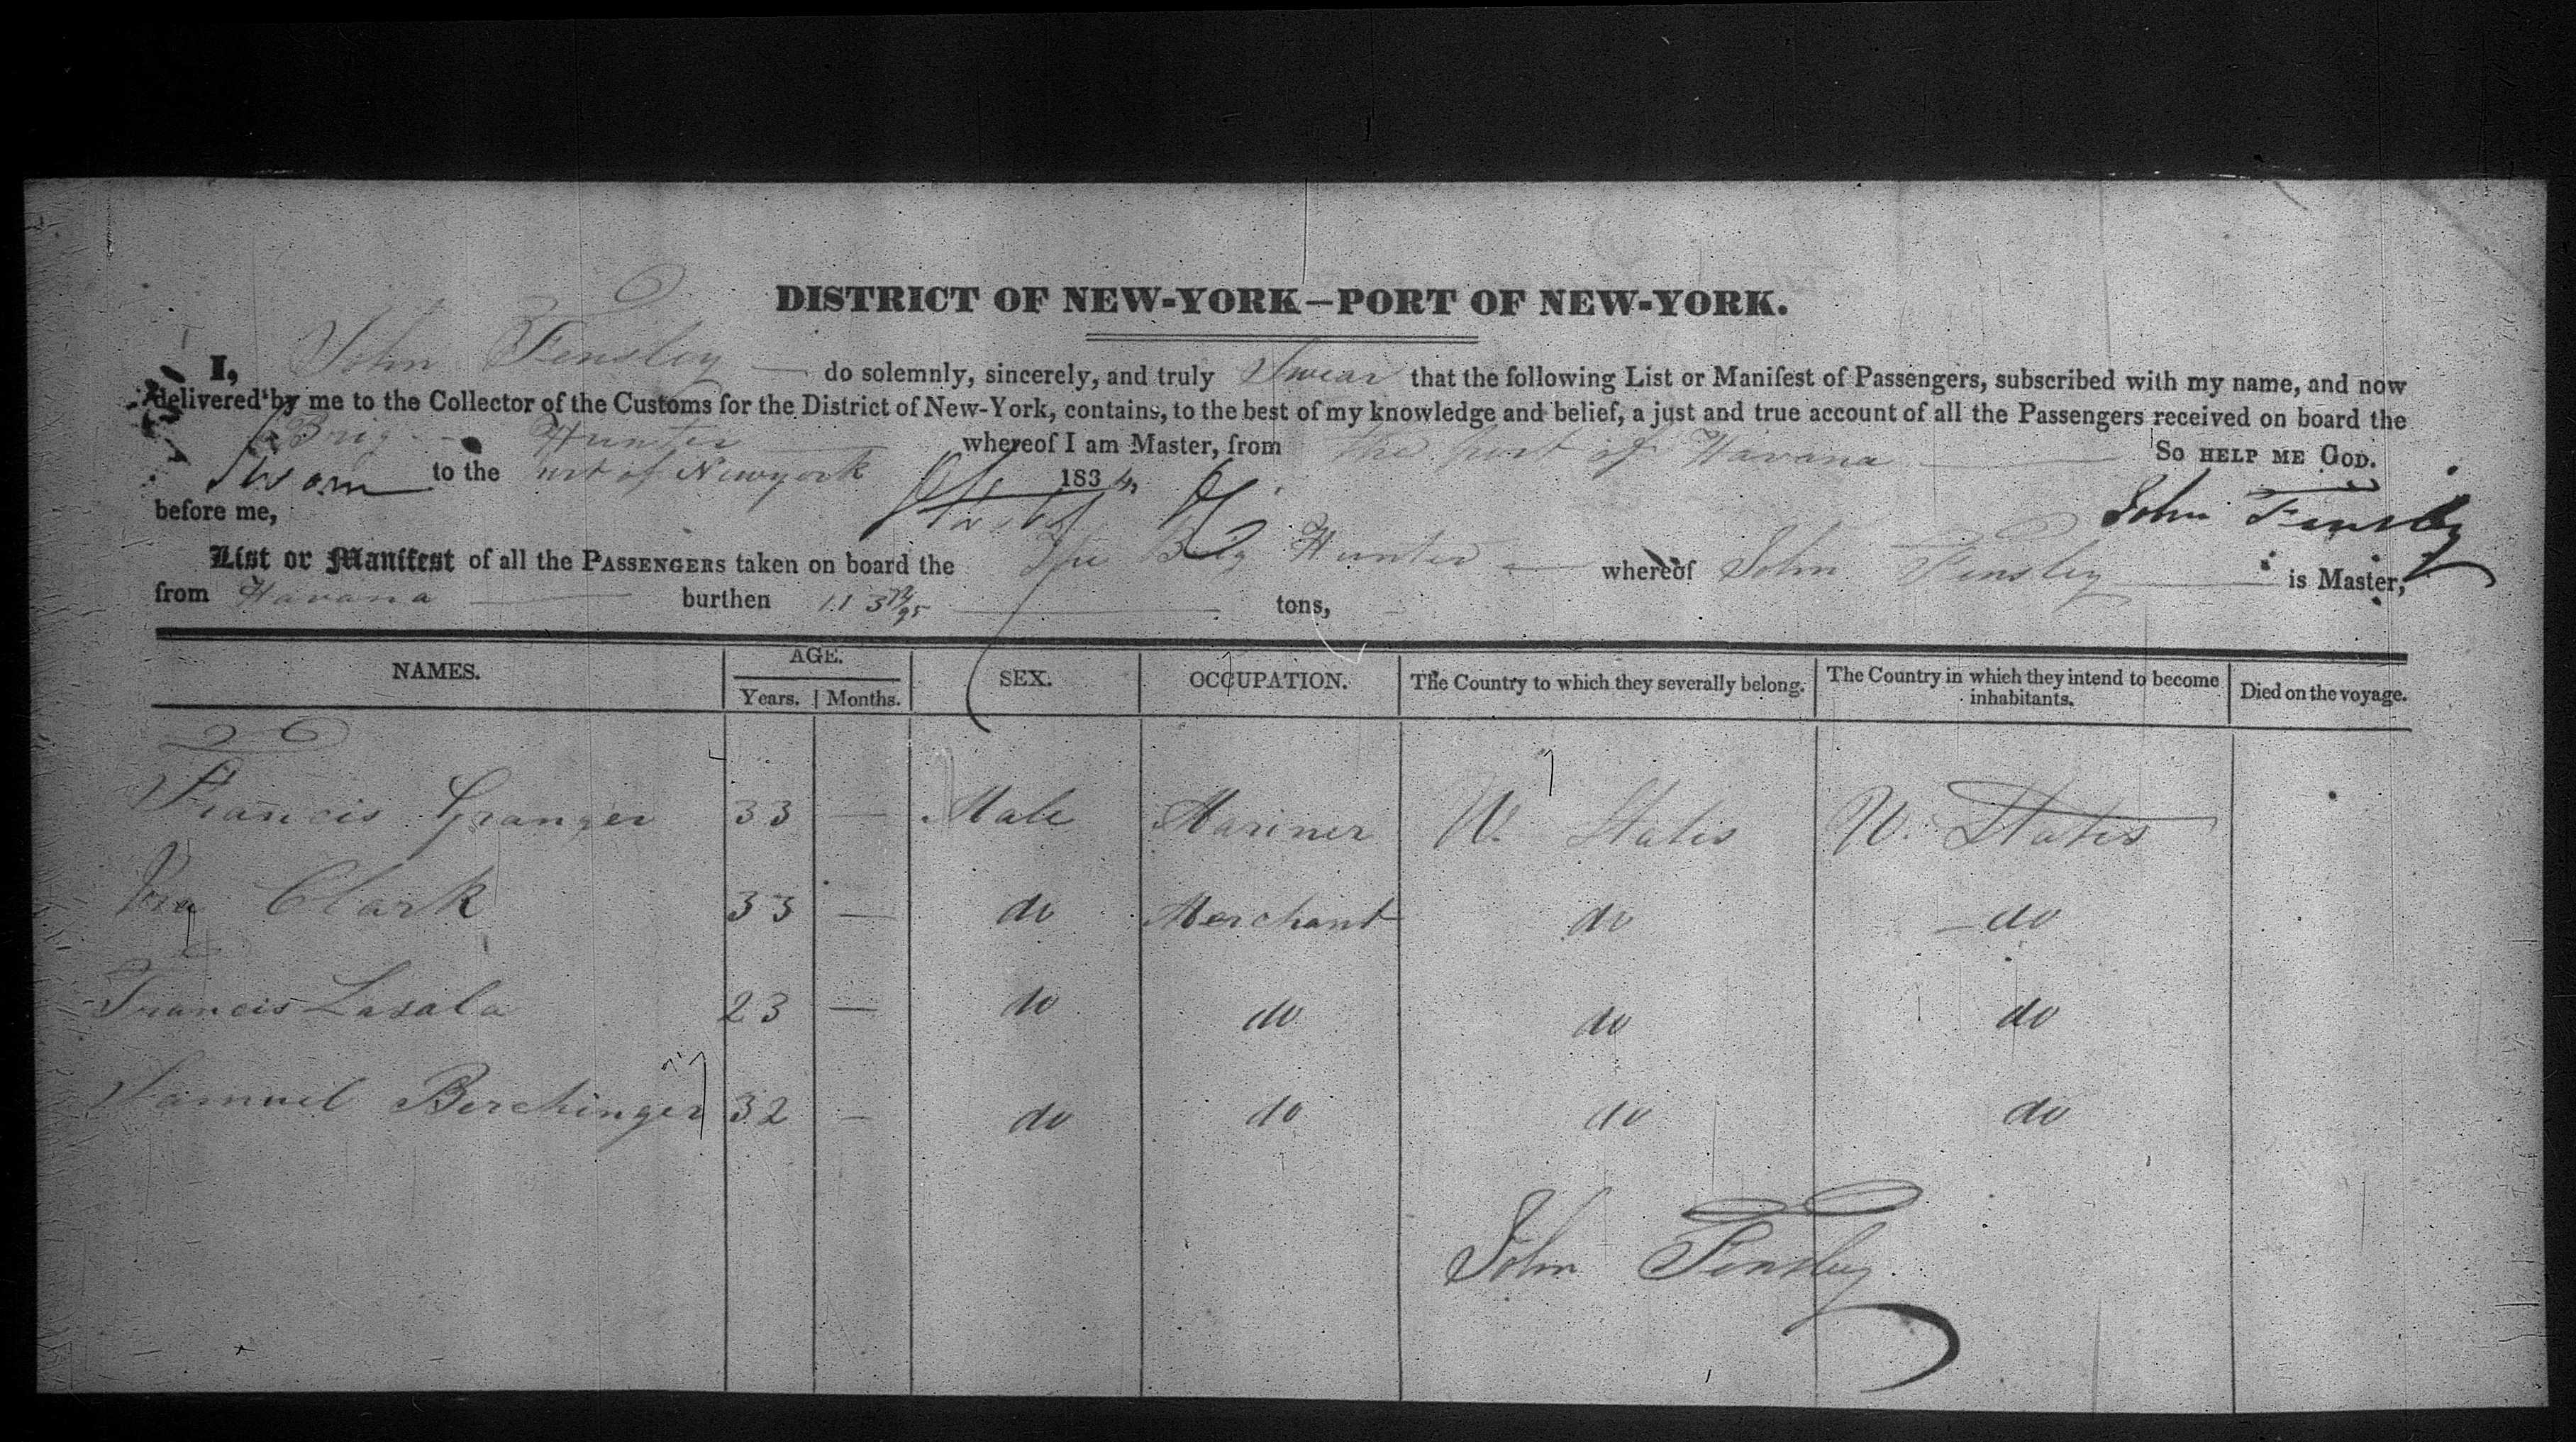 DISTRICT OF NEW-YORK—PORT OF NEW-YORK.
I, John Tensley do solemnly, sincerely, and truly Swear that the following List or Manifest of Passengers, subscribed with my name, and now
delivered by me to the Collector of the Customs for the District of New-York, contains, to the best of my knowledge and belief, a just and true account of all the Passengers received on board the
Brig Hunter whereof I am Master, from the port of Havana So HELP ME GOD.
Sworn to the of Newyork 1834
before me, John Tensley
List or Manifest of all the PASSENGERS taken on board the The Brig Hunter whereof John Tensley is Master,
from Havana burthen tons,
NAMES. AGE. SEX. OCCUPATION. The Country to which they severally belong. The Country in which they intend to become inhabitants. Died on the voyage.
Years. Months.
Francis Granger 33 — Male Mariner U. States U. States
Ira Clark 33 — do Merchant do do
Francis Lasala 23 — do do do do
Samuel Berchinger 32 — do do do do
John Tensley